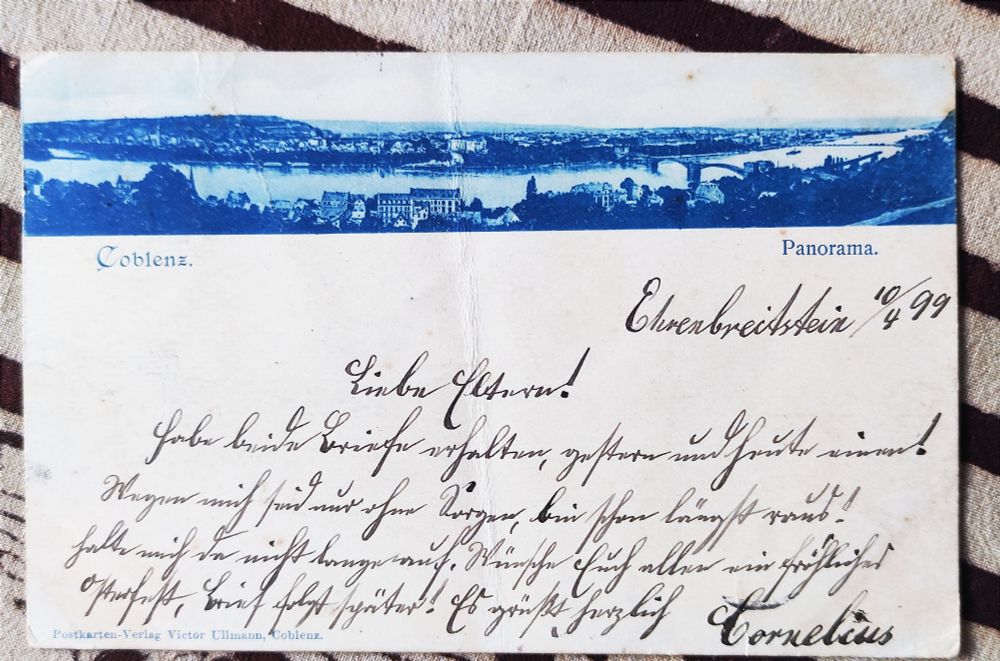 Coblenz.
Panorama.
Ehrenbreitstein 10/4 99
Liebe Eltern!
Habe beide Briefe erhalten, gestern und heute einen!
Wegen mich seid nur ohne Sorgen, bin schon längst raus!
halte mich da nicht lange auf. Wünsche Euch allen ein fröhliches
Osterfest, Brief folgt später! Es grüßt herzlich
Cornelius
Postkarten-Verlag Victor Ullmann, Coblenz.